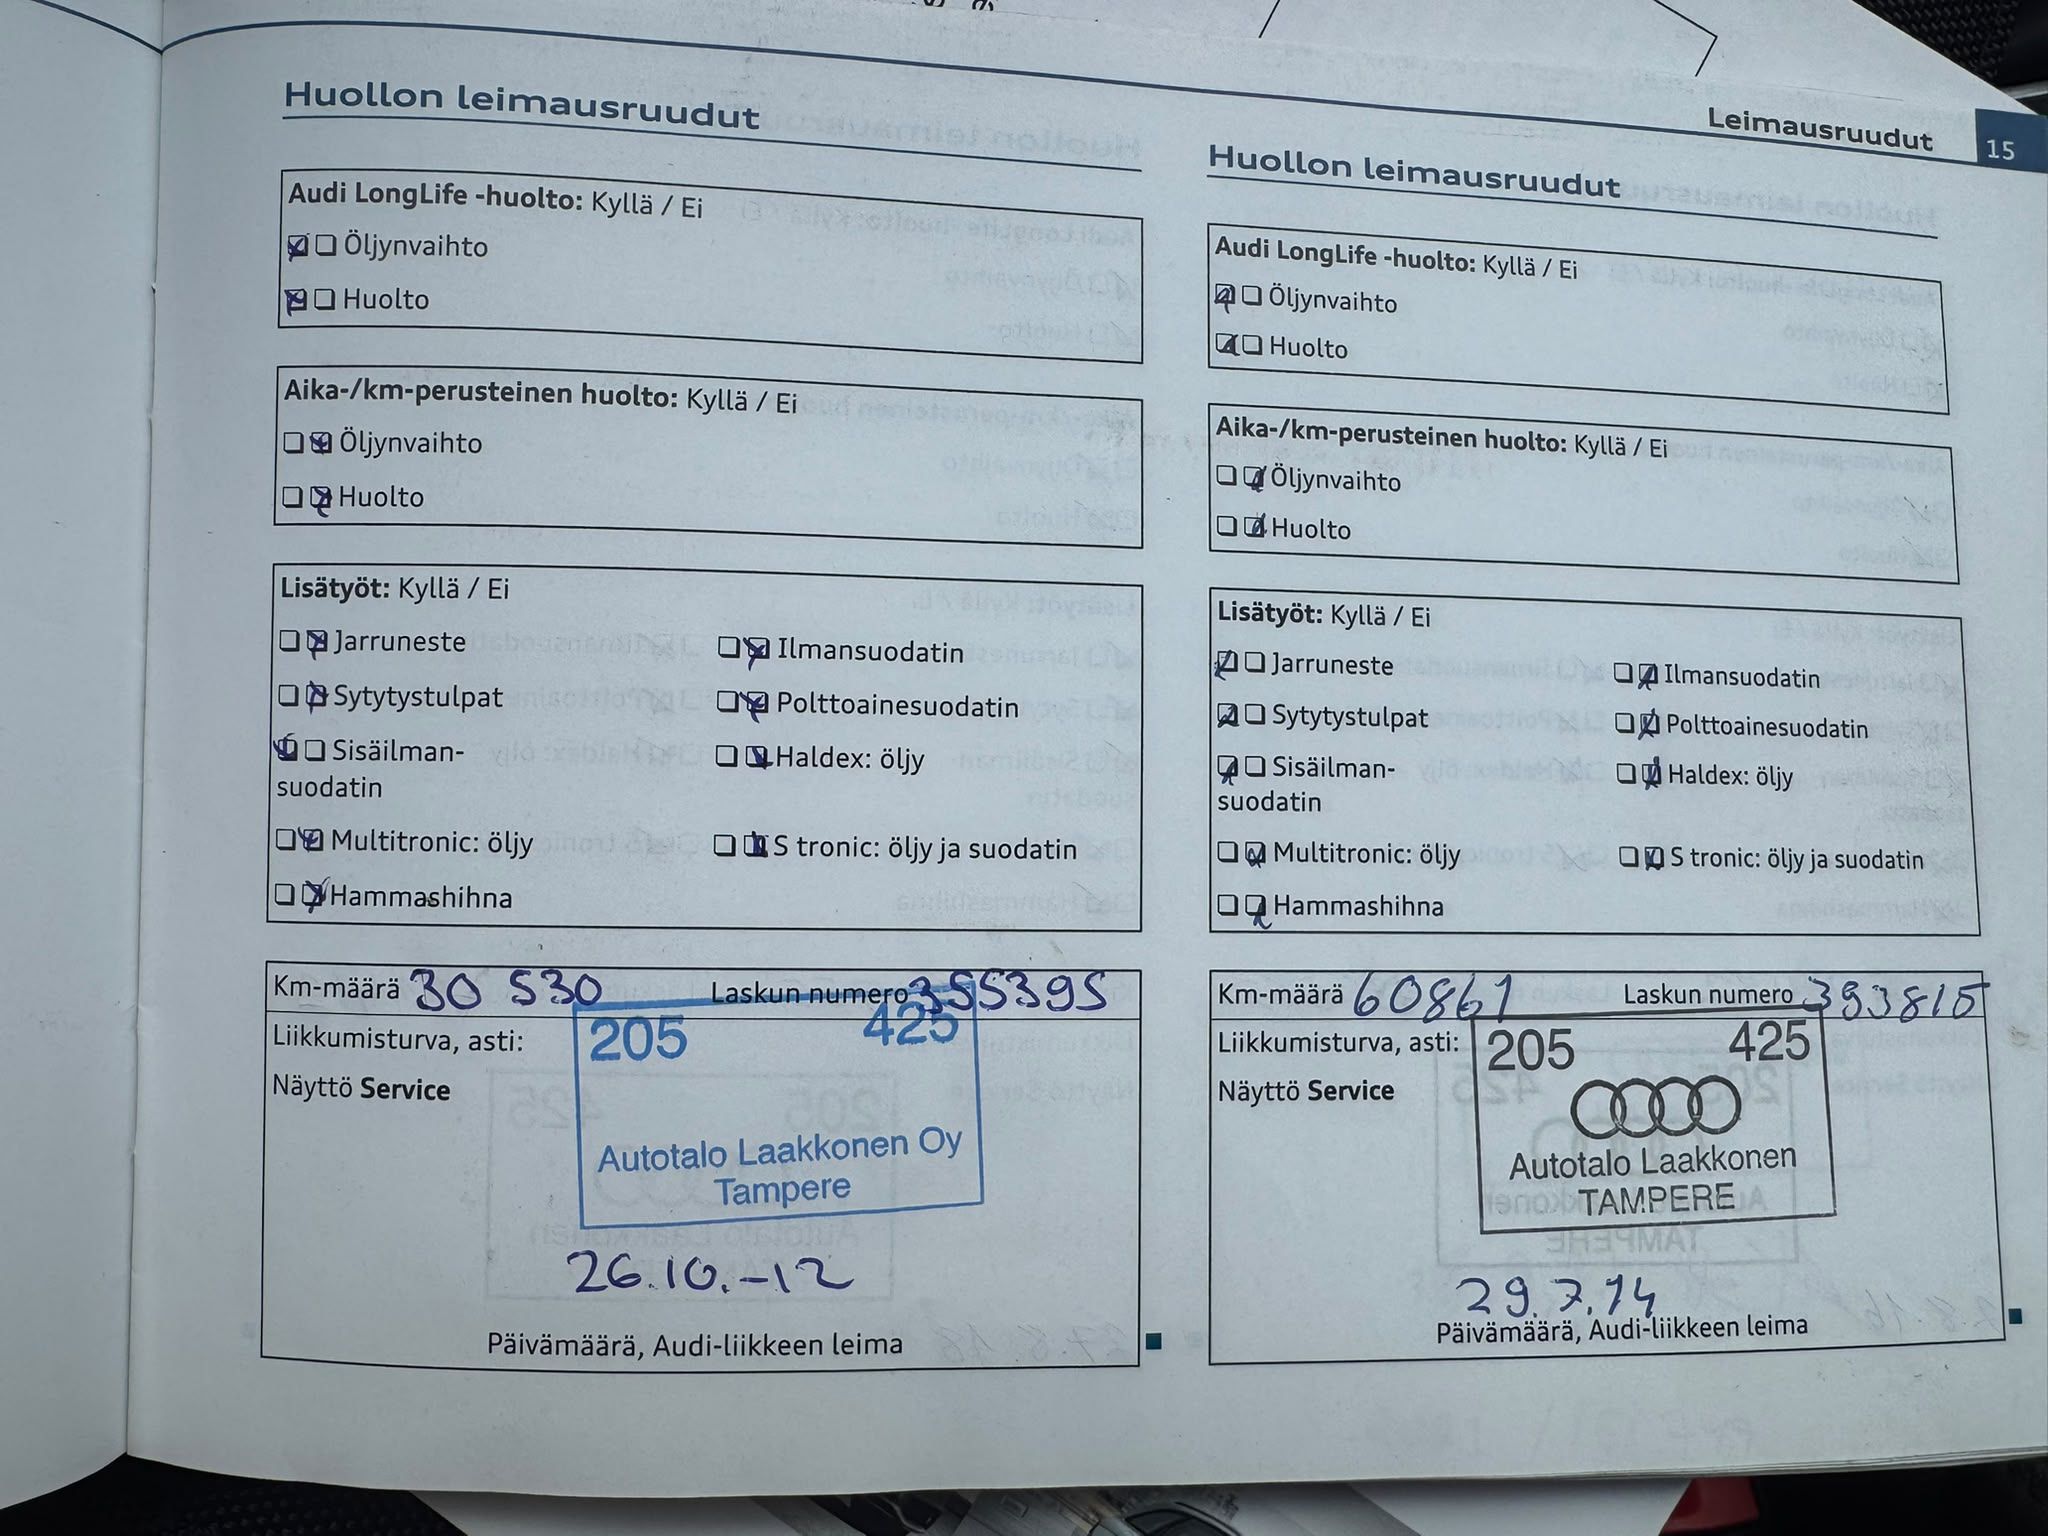 Leimausruudut 15
Huollon leimausruudut
Audi LongLife -huolto: Kyllä / Ei
Öljynvaihto
Huolto
Aika-/km-perusteinen huolto: Kyllä / Ei
Öljynvaihto
Huolto
Lisätyöt: Kyllä / Ei
Jarruneste Ilmansuodatin
Sytytystulpat Polttoainesuodatin
Sisäilman- Haldex: öljy
suodatin
Multitronic: öljy S tronic: öljy ja suodatin
Hammashihna
Km-määrä 30 530 Laskun numero 355395
Liikkumisturva, asti: 205 425
Näyttö Service
Autotalo Laakkonen Oy
Tampere
26.10.-12
Päivämäärä, Audi-liikkeen leima
Huollon leimausruudut
Audi LongLife -huolto: Kyllä / Ei
Öljynvaihto
Huolto
Aika-/km-perusteinen huolto: Kyllä / Ei
Öljynvaihto
Huolto
Lisätyöt: Kyllä / Ei
Jarruneste Ilmansuodatin
Sytytystulpat Polttoainesuodatin
Sisäilman- Haldex: öljy
suodatin
Multitronic: öljy S tronic: öljy ja suodatin
Hammashihna
Km-määrä 60861 Laskun numero 393815
Liikkumisturva, asti: 205 425
Näyttö Service
Autotalo Laakkonen
TAMPERE
29.7.14
Päivämäärä, Audi-liikkeen leima